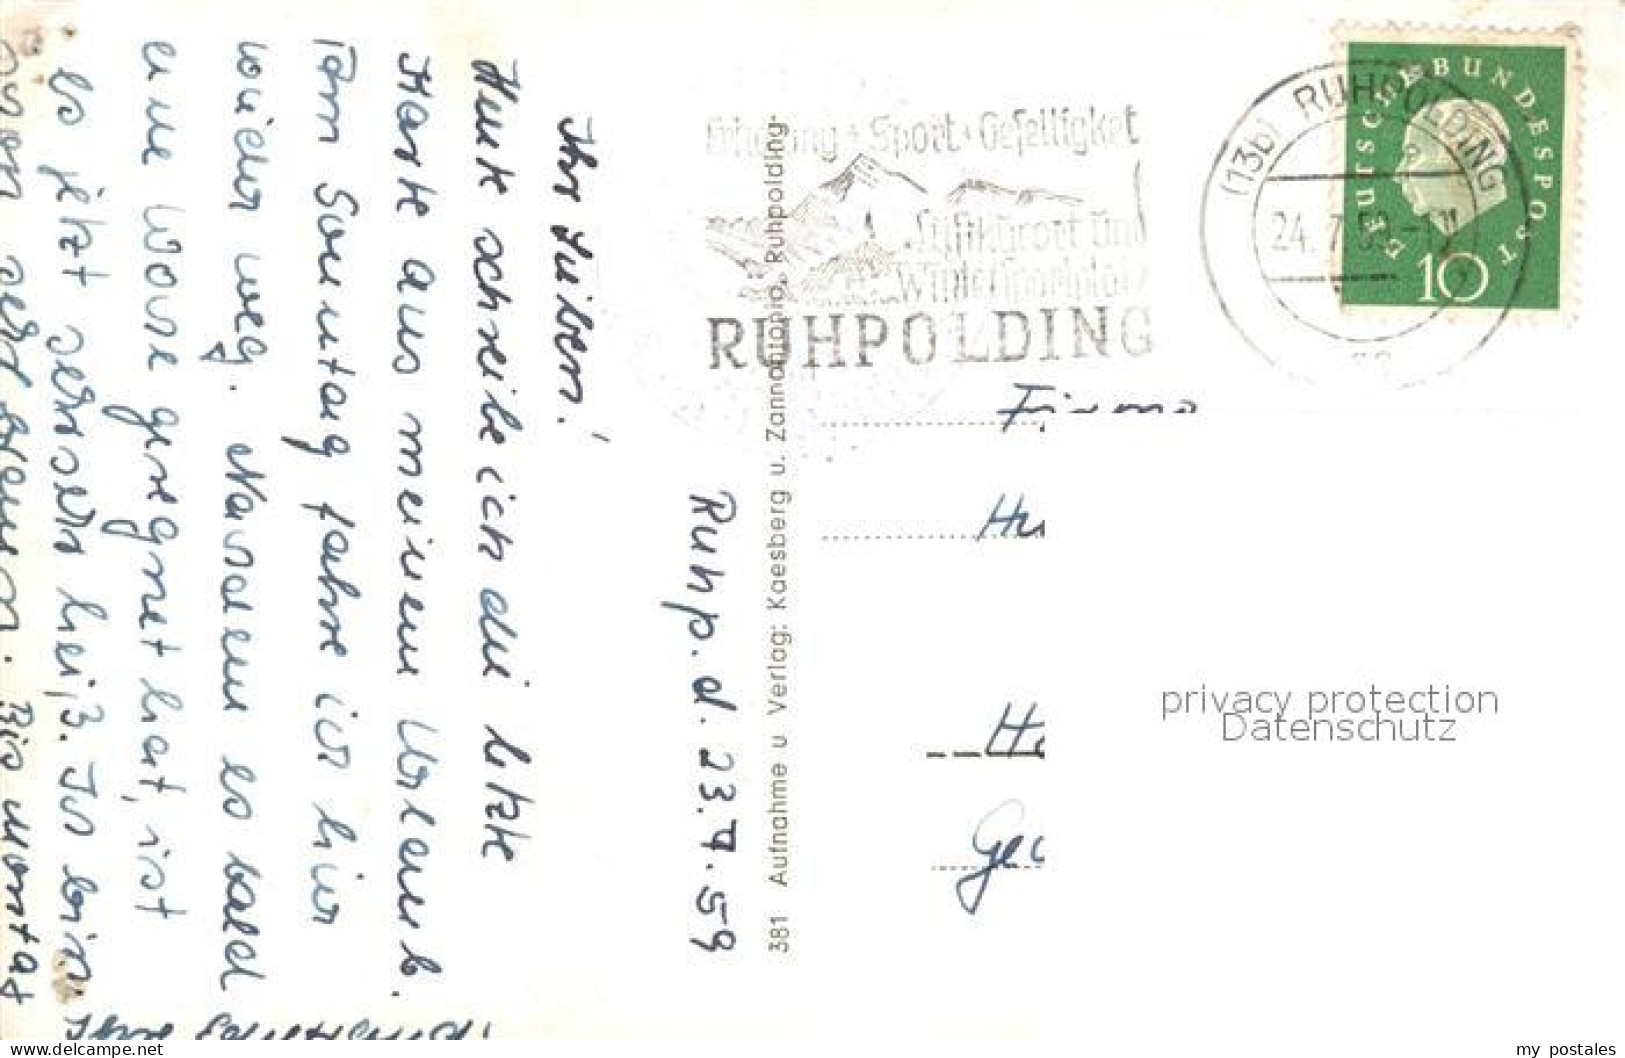 Ruhp. d. 23.7.59
Ihr Lieben!
Heute schreibe ich die letzte
Karte aus meinem Urlaub.
Am Sonntag fahre ich hier
wieder weg. Nachdem es bald
eine Woche geregnet hat, ist
es jetzt sehr heiß. Ich bin
schon sehr braun. Bis montag
381 Aufnahme u Verlag: Kaesberg u. Zannantonio, Ruhpolding
Erholung + Sport + Geselligkeit
Luftkurort und
Wintersportplatz
RUHPOLDING
(13b) RUHPOLDING
24.7.59
DEUTSCHE BUNDESPOST
10
Firma
Hu
He
Ge
privacy protection
Datenschutz
delcampe.net
my_postales